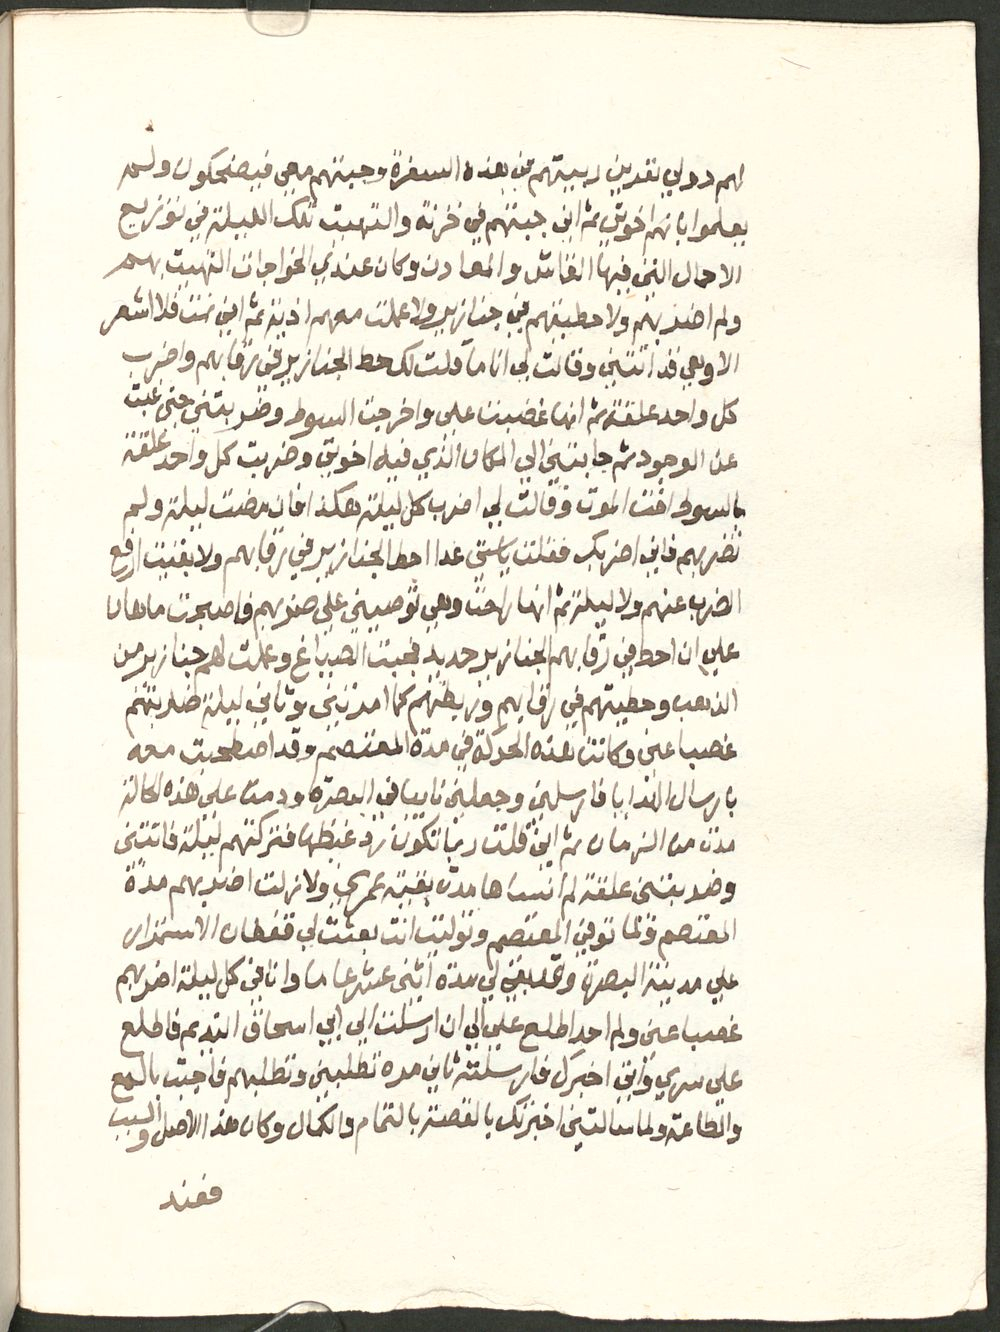 لهم دولي نقدين ربيتهم في هذه السفرة وجبتهم معي فيضحكون ولم
يعلموا بانهم اخوتي ثم اني جبتهم في خزنه والتهيت تلك الليلة في توزيع
الاحمال التي فيها القماش والمعادن وكان عندي الخواجات التهيت بهم
ولم اضربهم ولا حطيتهم في جنازير ولا عملت معهم اذية ثم اني نمت فلا اشعر
الا وهي قد اتتني وقالت لي انا ما قلت لك حط الجنازير في رقابهم واضرب
كل واحد علقة ثم انها غضبت علي واخرجت السوط وضربتني حتى غبت
عن الوجود ثم جابتني الي المكان الذي فيه اخوتي وضربت كل واحد علقة
بالسوط اخت الموت وقالت لي اضرب كل ليلة هكذا فان مضت ليلة ولم
تضربهم فاني اضربك فقلت ياستي غدا احط الجنازير في رقابهم ولا بقيت ارفع
الضرب عنهم ولا ليلة ثم انها راحت وهي توصيني على ضربهم فاصبحت ما هان
علي ان احط في رقابهم الجنازير حديد فجبت الصياغ وعملت لهم جنازير من
الذهب وحطيتهم في رقابهم وربطتهم كما امرتني وثاني ليلة ضربتهم
غصبا عني وكانت هذه الحركة في مدة المعتصم وقد اصطلحت معه
بارسال الهدايا فارسلني وجعلني نايبا في البصرة ودمت على هذه الحالة
مدة من الزمان ثم اني قلت ربما تكون برد غيظها فتركتهم ليلة فاتتني
وضربتني علقة لم انساها مدة بقية عمري ولا زلت اضربهم مدة
المعتصم ولما توفي المعتصم وتوليت انت بعثت لي قفطان الاستمرار
علي مدينة البصرة وقد بقي لي مدة اثني عشر عاما وانا في كل ليلة اضربهم
غصبا عني ولم احد اطلع علي الي ان ارسلت الي ابي اسحاق النديم فاطلع
علي سري واتي اخبرك فارسلته ثاني مره تطلبني وتطلبهم فاجبت بالسمع
والطاعة ولما سالتني اخبرتك بالقصة بالتمام والكمال وكان هذا الاصل والسبب
فعند